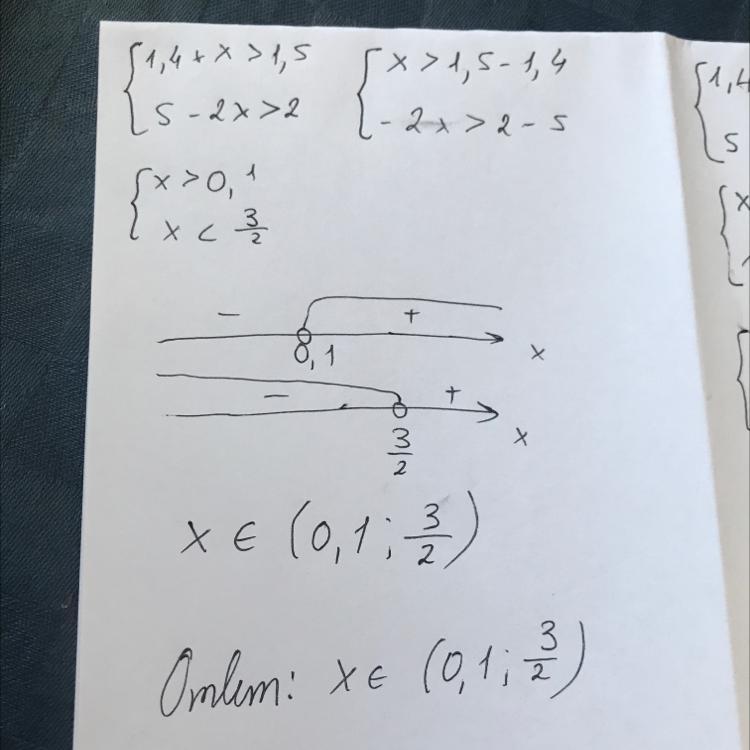 {1,4 + x > 1,5
5 - 2x > 2
{x > 1,5 - 1,4
- 2x > 2 - 5
{x > 0,1
x < 3/2
- +
0,1 x
- +
3/2 x
x ∈ (0,1; 3/2)
Ответ: x ∈ (0,1; 3/2)
{1,4
5
{x